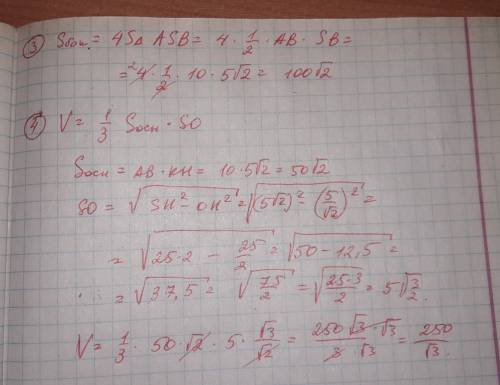 ③ Sбок. = 4S△ ASB = 4 · 1/2 · AB · SB =
= ²4 · 1/2 · 10 · 5√2 = 100√2
④ V = 1/3 Sосн · SO
Sосн = AB · KH = 10 · 5√2 = 50√2
SO = √(SH² - OH²) = √((5√2)² - (5/√2)²) =
= √(25·2 - 25/2) = √(50 - 12,5) =
= √(37,5) = √(75/2) = √(25·3/2) = 5√(3/2).
V = 1/3 · 50 · √2 · 5 · √3/√2 = 250√3·√3/3·√3 = 250/√3.